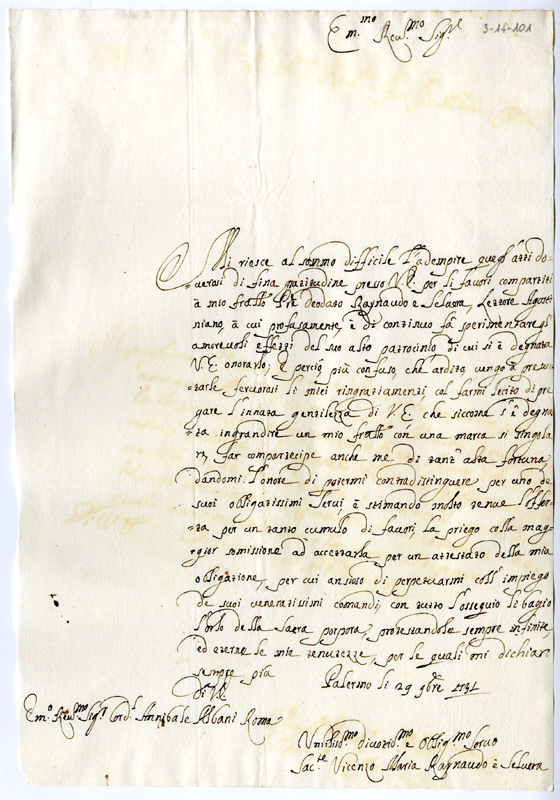 Em.mo Reu.mo Sig.r
3-14-101
Mi riesce al sommo difficile l'adempire quegl'atti do-
uerosi di fina gratitudine presso V.E. per li fauori compartiti
à mio frallo P.re Deodato Raynaudo e Seluera, Lettore Agosti
niano, à cui profusamente, e di continuo fà sperimentare gl'
amoreuoli effetti del suo alto patrocinio di cui si è degnata
V.E. onorarlo; E perciò più confuso, che ardito, uengo à presen-
tarle feruorosi li miei ringratiamenti, col farmi lecito di pre
gare l'innata gentilezza di V.E. che siccome s'è degna
ta ingrandire un mio frallo con una marca si singola
re, far compartecipe anche me di tant'alta fortuna,
dandomi l'onore di potermi contradistinguere per uno de
suoi obligatissimi Serui è stimando molto tenue l'offer-
ta per un tanto cumulo di fauori, La priego colla mag-
gior somissione ad accettarla per un attestato della mia
obligatione, per cui ansioso di perpetuarmi coll'impiego
de suoi ueneratissimi comandi, con tutto l'ossequio li bagio
l'orlo della Sacra porpora, protestandole sempre infinite
ed eterne le mie tenutezze, per le quali mi dichiaro
sempre più
di V.E. Palermo li 29 9bre 1731
Em.o Reu.mo Sig.r Card.l Annibale Albani Roma
Umiliss.mo diuotis.mo e Oblig.mo Seruo
Sac.te Vicenzo Maria Raynaudo è Seluera